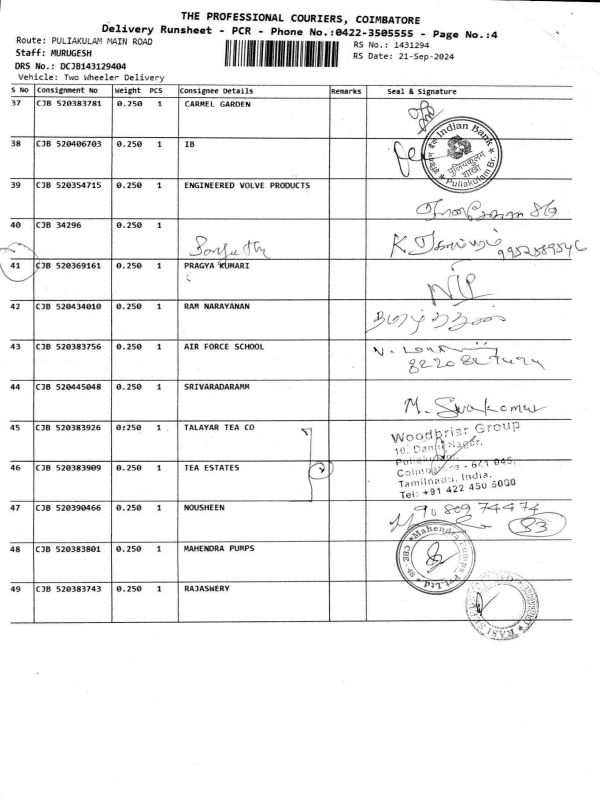 THE PROFESSIONAL COURIERS, COIMBATORE
Delivery Runsheet - PCR - Phone No.:0422-3505555 - Page No.:4
Route: PULIAKULAM MAIN ROAD
RS No.: 1431294
Staff: MURUGESH
RS Date: 21-Sep-2024
DRS No.: DCJB143129404
Vehicle: Two Wheeler Delivery
S No Consignment No Weight PCS Consignee Details Remarks Seal & Signature
37 CJB 520383781 0.250 1 CARMEL GARDEN
38 CJB 520406703 0.250 1 IB
Indian Bank
पुलियकुलम
शाखा
Puliakulam Br.
39 CJB 520354715 0.250 1 ENGINEERED VOLVE PRODUCTS
40 CJB 34296 0.250 1
K
9952589546
41 CJB 520369161 0.250 1 PRAGYA KUMARI
42 CJB 520434010 0.250 1 RAM NARAYANAN
43 CJB 520383756 0.250 1 AIR FORCE SCHOOL
44 CJB 520445048 0.250 1 SRIVARADARAMM
M. Sivakumar
45 CJB 520383926 0:250 1 TALAYAR TEA CO
Woodbriar Group
Nagar,
46 CJB 520383909 0.250 1 TEA ESTATES
Coimbatore - 641 045,
Tamilnadu, India.
Tel: +91 422 450 5000
47 CJB 520390466 0.250 1 NOUSHEEN
90 809 74474
83
48 CJB 520383801 0.250 1 MAHENDRA PUMPS
Mahendra Pumps Pvt.Ltd
CBE - 45
49 CJB 520383743 0.250 1 RAJASWERY